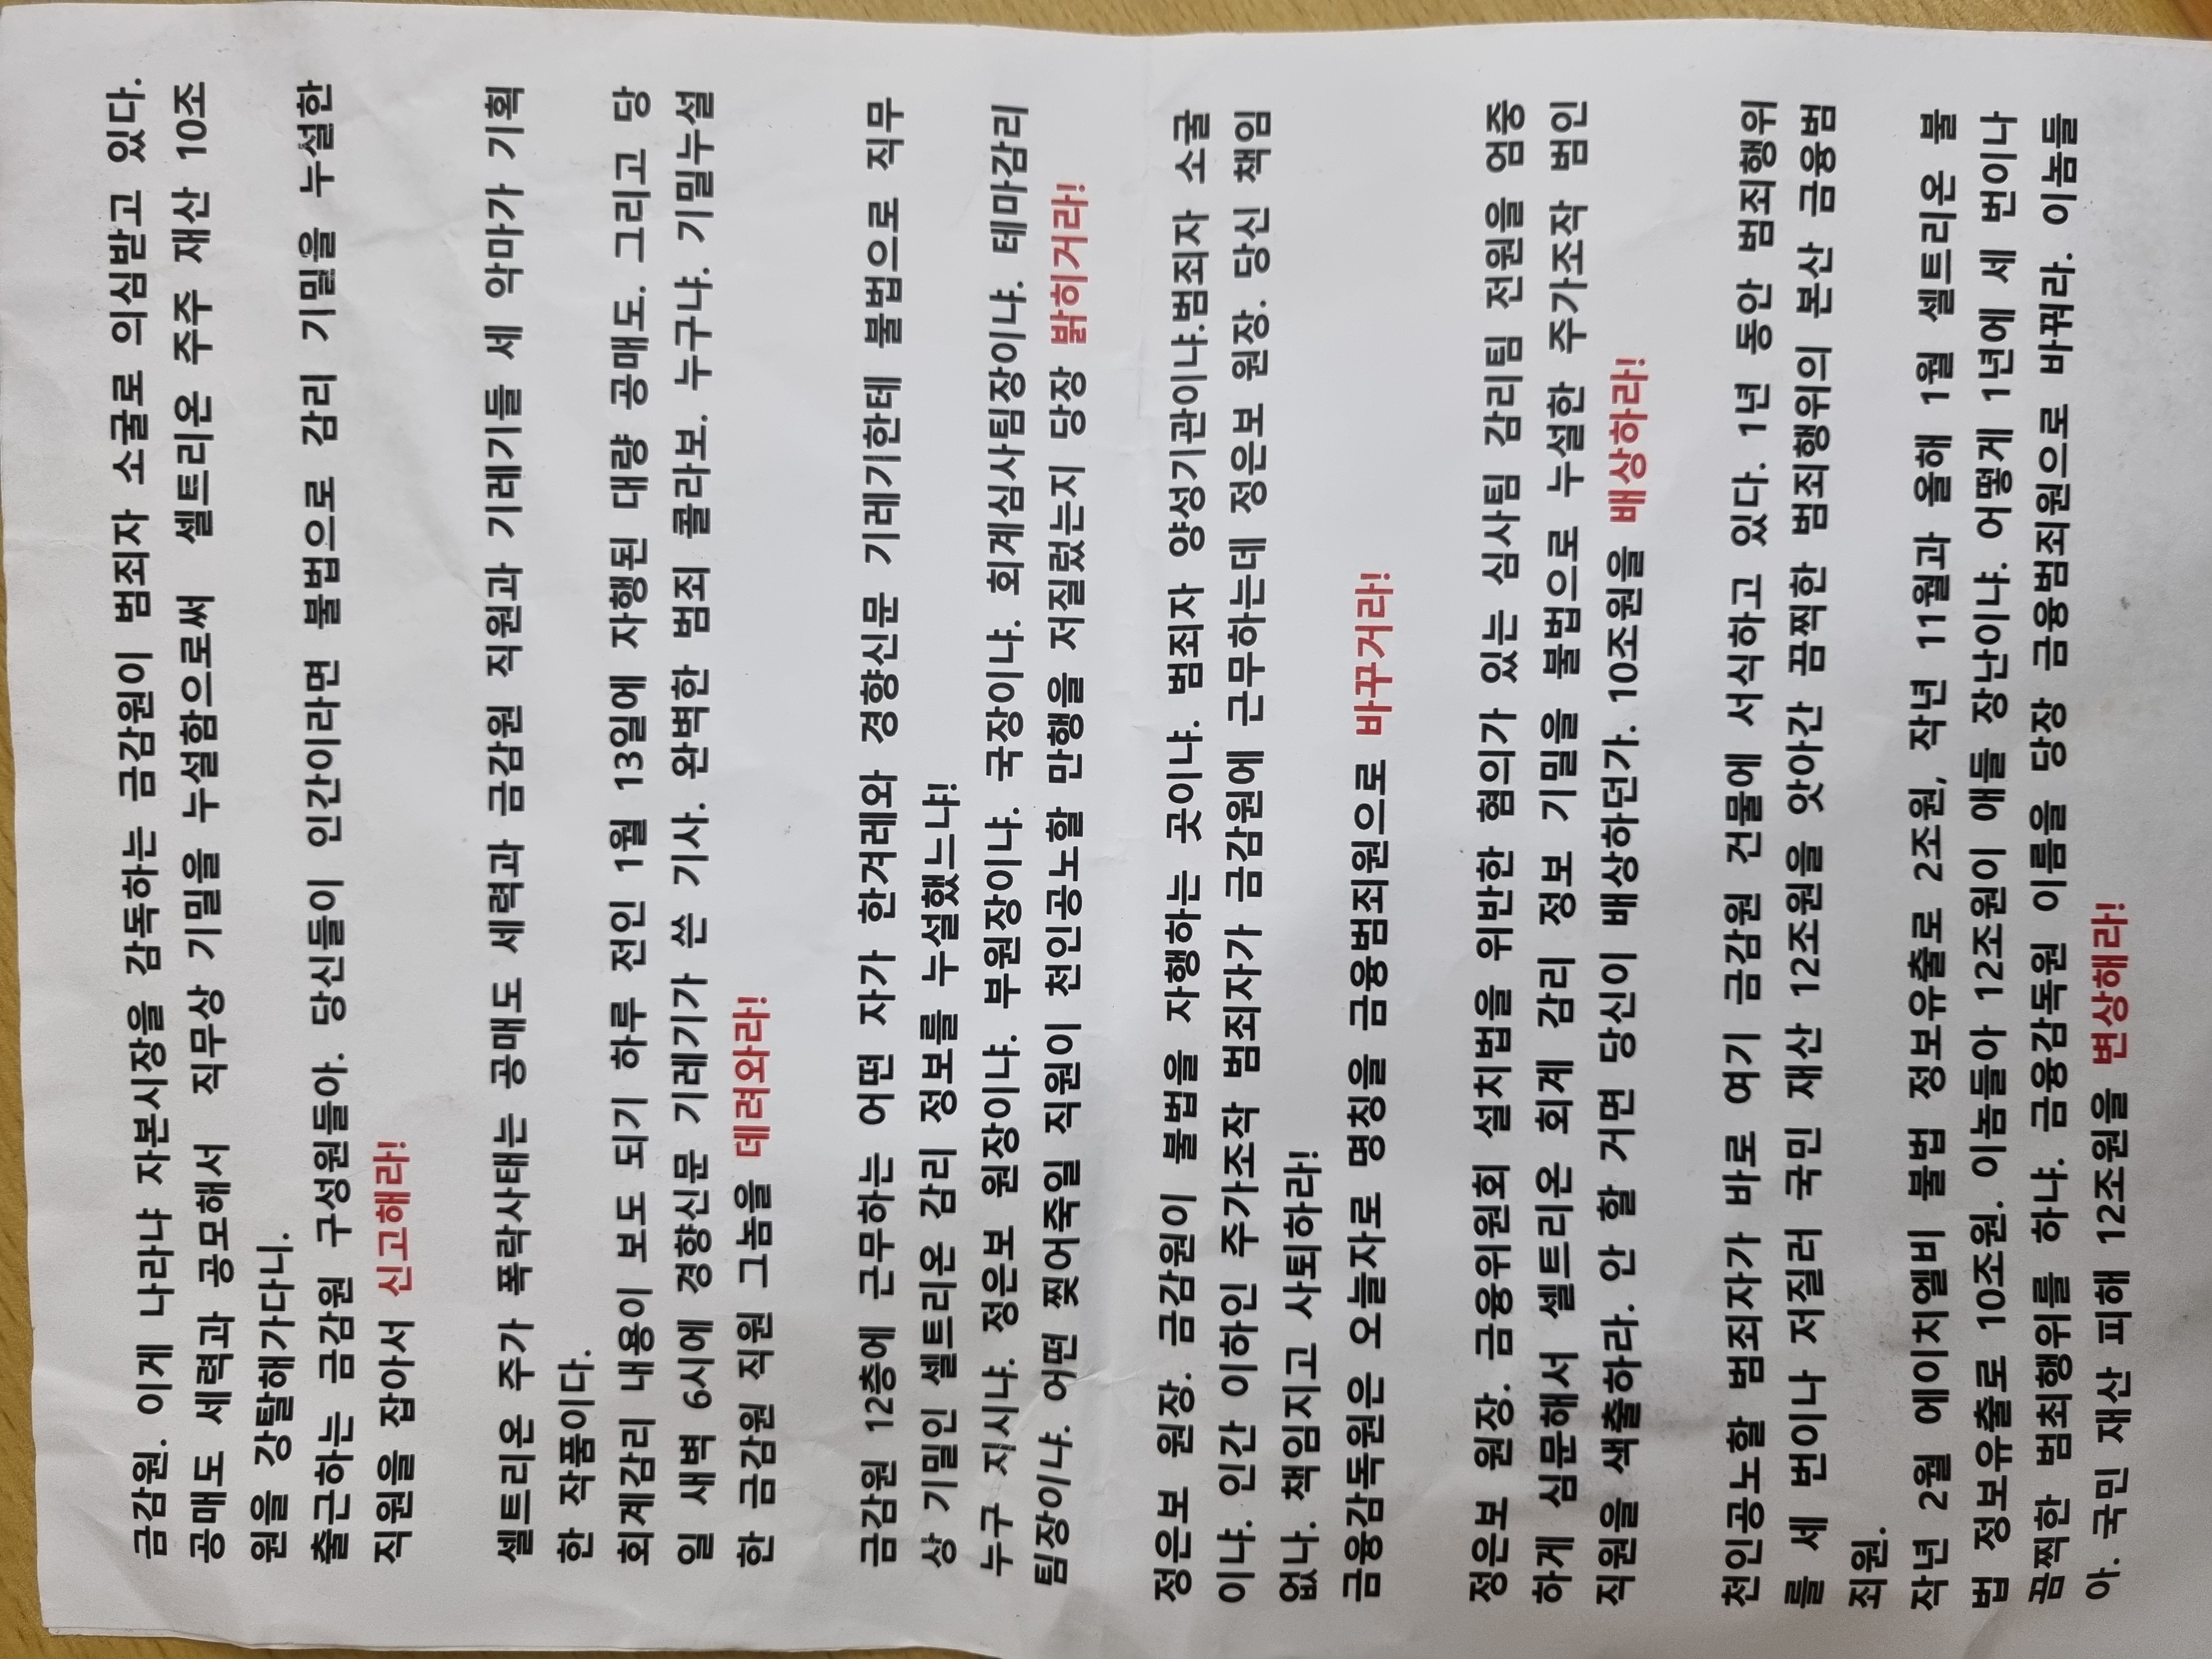 금감원. 이게 나라냐 자본시장을 감독하는 금감원이 범죄자 소굴로 의심받고 있다.
공매도 세력과 공모해서 직무상 기밀을 누설함으로써 셀트리온 주주 재산 10조
원을 강탈해가다니.
출근하는 금감원 구성원들아. 당신들이 인간이라면 불법으로 감리 기밀을 누설한
직원을 잡아서 신고해라!
셀트리온 주가 폭락사태는 공매도 세력과 금감원 직원과 기레기들 세 악마가 기획
한 작품이다.
회계감리 내용이 보도 되기 하루 전인 1월 13일에 자행된 대량 공매도. 그리고 당
일 새벽 6시에 경향신문 기레기가 쓴 기사. 완벽한 범죄 콜라보. 누구냐. 기밀누설
한 금감원 직원 그놈을 데려와라!
금감원 12층에 근무하는 어떤 자가 한겨레와 경향신문 기레기한테 불법으로 직무
상 기밀인 셀트리온 감리 정보를 누설했느냐!
누구 지시냐. 정은보 원장이냐. 부원장이냐. 국장이냐. 회계심사팀장이냐. 테마감리
팀장이냐. 어떤 찢어죽일 직원이 천인공노할 만행을 저질렀는지 당장 밝히거라!
정은보 원장. 금감원이 불법을 자행하는 곳이냐. 범죄자 양성기관이냐.범죄자 소굴
이냐. 인간 이하인 주가조작 범죄자가 금감원에 근무하는데 정은보 원장. 당신 책임
없나. 책임지고 사퇴하라!
금융감독원은 오늘자로 명칭을 금융범죄원으로 바꾸거라!
정은보 원장. 금융위원회 설치법을 위반한 혐의가 있는 심사팀 감리팀 전원을 엄중
하게 심문해서 셀트리온 회계 감리 정보 기밀을 불법으로 누설한 주가조작 범인
직원을 색출하라. 안 할 거면 당신이 배상하던가. 10조원을 배상하라!
천인공노할 범죄자가 바로 여기 금감원 건물에 서식하고 있다. 1년 동안 범죄행위
를 세 번이나 저질러 국민 재산 12조원을 앗아간 끔찍한 범죄행위의 본산 금융범
죄원.
작년 2월 에이치엘비 불법 정보유출로 2조원, 작년 11월과 올해 1월 셀트리온 불
법 정보유출로 10조원. 이놈들아 12조원이 애들 장난이냐. 어떻게 1년에 세 번이나
끔찍한 범죄행위를 하냐. 금융감독원 이름을 당장 금융범죄원으로 바꿔라. 이놈들
아. 국민 재산 피해 12조원을 변상해라!